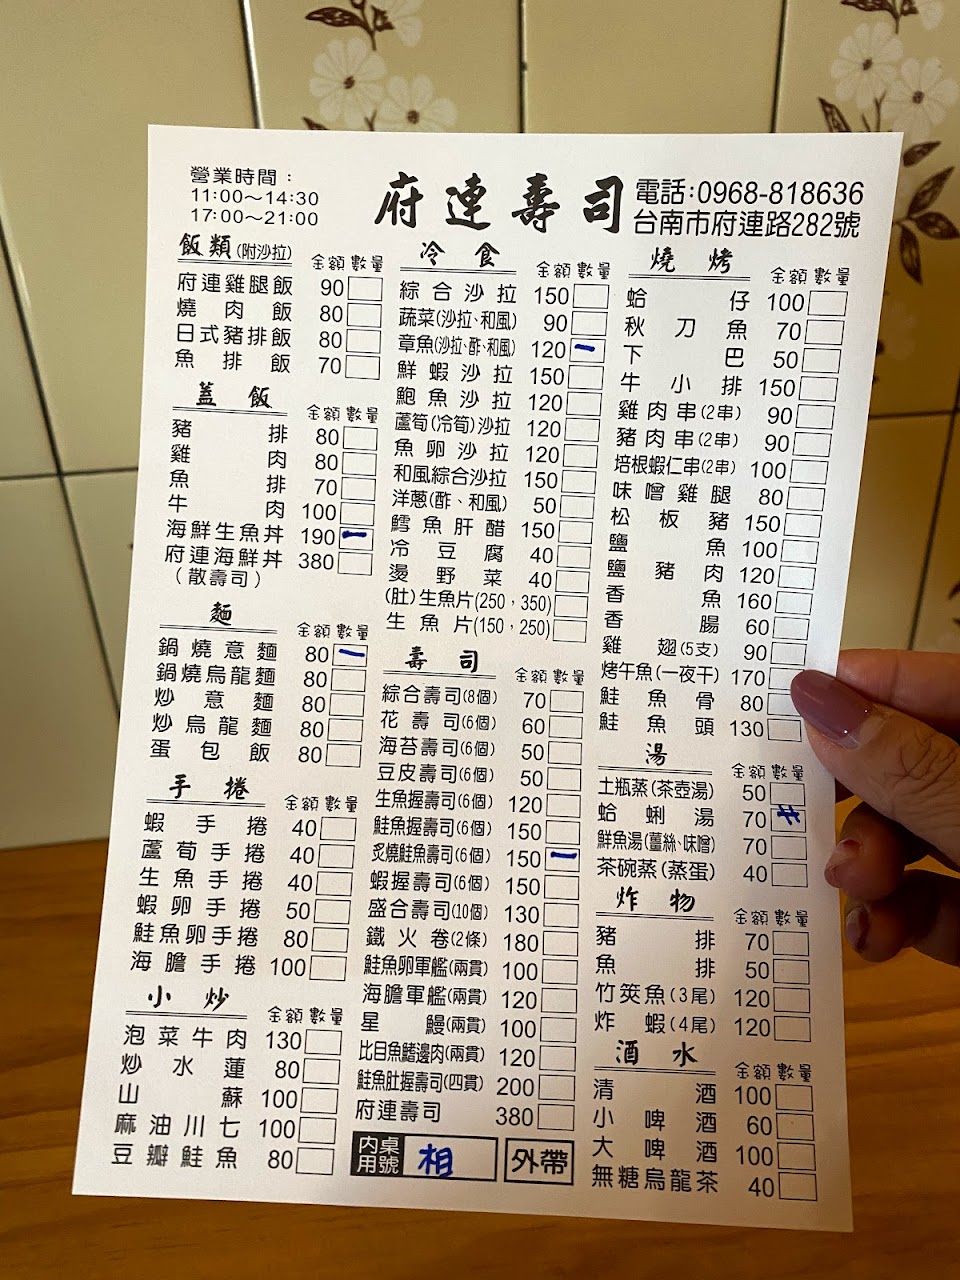 營業時間：
11:00～14:30
17:00～21:00
府連壽司
電話:0968-818636
台南市府連路282號
飯類(附沙拉) 金額 數量
府連雞腿飯 90
燒肉飯 80
日式豬排飯 80
魚排飯 70
蓋飯 金額 數量
豬排 80
雞肉 80
魚排 70
牛肉 100
海鮮生魚丼 190 一
府連海鮮丼 380
（散壽司）
麵 金額 數量
鍋燒意麵 80 一
鍋燒烏龍麵 80
炒意麵 80
炒烏龍麵 80
蛋包飯 80
手捲 金額 數量
蝦手捲 40
蘆荀手捲 40
生魚手捲 40
蝦卵手捲 50
鮭魚卵手捲 80
海膽手捲 100
小炒 金額 數量
泡菜牛肉 130
炒水蓮 80
山蘇 100
麻油川七 100
豆瓣鮭魚 80
冷食 金額 數量
綜合沙拉 150
蔬菜(沙拉、和風) 90
章魚(沙拉、酢、和風) 120 一
鮮蝦沙拉 150
鮑魚沙拉 120
蘆筍(冷筍)沙拉 120
魚卵沙拉 120
和風綜合沙拉 150
洋蔥(酢、和風) 50
鱈魚肝醋 150
冷豆腐 40
燙野菜 40
(肚)生魚片(250，350)
生魚片(150，250)
壽司 金額 數量
綜合壽司(8個) 70
花壽司(6個) 60
海苔壽司(6個) 50
豆皮壽司(6個) 50
生魚握壽司(6個) 120
鮭魚握壽司(6個) 150
炙燒鮭魚壽司(6個) 150 一
蝦握壽司(6個) 150
盛合壽司(10個) 130
鐵火卷(2條) 180
鮭魚卵軍艦(兩貫) 100
海膽軍艦(兩貫) 120
星鰻(兩貫) 100
比目魚鰭邊肉(兩貫) 120
鮭魚肚握壽司(四貫) 200
府連壽司 380
內用 桌號 相 外帶
燒烤 金額 數量
蛤仔 100
秋刀魚 70
下巴 50
牛小排 150
雞肉串(2串) 90
豬肉串(2串) 90
培根蝦仁串(2串) 100
味噌雞腿 80
松板豬 150
鹽魚 100
鹽豬肉 120
香魚 160
香腸 60
雞翅(5支) 90
烤午魚(一夜干) 170
鮭魚骨 80
鮭魚頭 130
湯 金額 數量
土瓶蒸(茶壺湯) 50
蛤蜊湯 70
鮮魚湯(薑絲、味噌) 70
茶碗蒸(蒸蛋) 40
炸物 金額 數量
豬排 70
魚排 50
竹筴魚(3尾) 120
炸蝦(4尾) 120
酒水 金額 數量
清酒 100
小啤酒 60
大啤酒 100
無糖烏龍茶 40